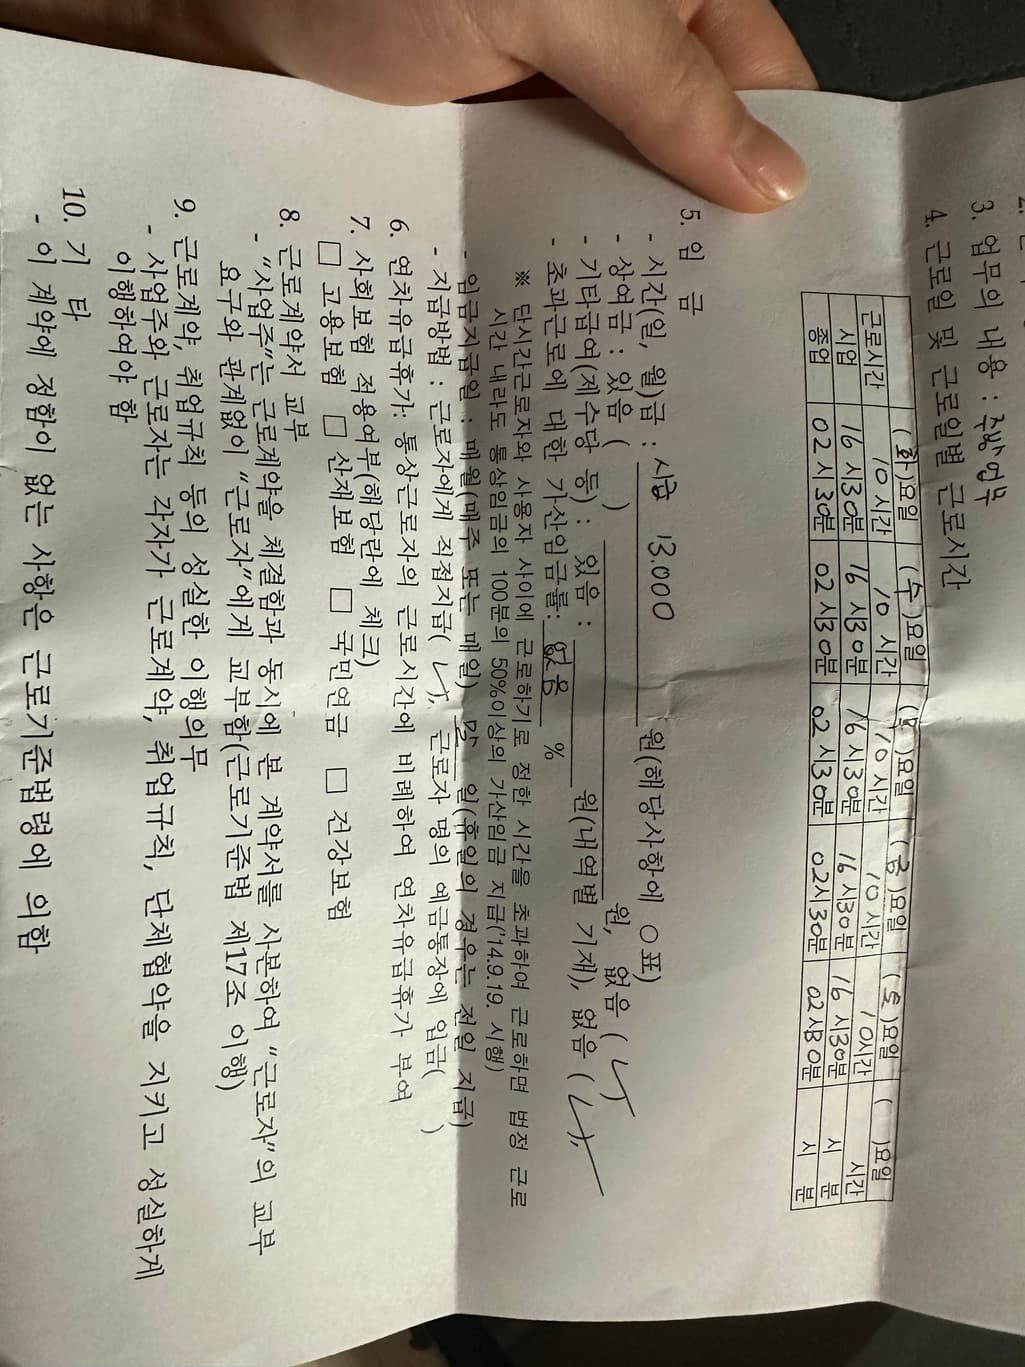 3. 업무의 내용 : 주방 업무
4. 근로일 및 근로일별 근로시간
( 화 )요일 ( 수 )요일 ( 목 )요일 ( 금 )요일 ( 토 )요일 (   )요일
근로시간 10 시간 10 시간 10 시간 10 시간 10시간 시간
시업 16 시30분 16 시30분 16 시30분 16 시30분 16 시30분 시 분
종업 02 시 30분 02 시30분 02 시30분 02시30분 02시30분 시 분
5. 임 금
- 시간(일, 월)급 : 시급 13.000 원(해당사항에 ○표)
- 상여금 : 있음 (   ) 원, 없음 (   )
- 기타급여(제수당 등) : 있음 : 원(내역별 기재), 없음 (   ),
- 초과근로에 대한 가산임금률: 없음 %
※ 단시간근로자와 사용자 사이에 근로하기로 정한 시간을 초과하여 근로하면 법정 근로
시간 내라도 통상임금의 100분의 50%이상의 가산임금 지급('14.9.19. 시행)
- 임금지급일 : 매월(매주 또는 매일) 말 일(휴일의 경우는 전일 지급)
- 지급방법 : 근로자에게 직접지급(   ), 근로자 명의 예금통장에 입금(   )
6. 연차유급휴가: 통상근로자의 근로시간에 비례하여 연차유급휴가 부여
7. 사회보험 적용여부(해당란에 체크)
□ 고용보험 □ 산재보험 □ 국민연금 □ 건강보험
8. 근로계약서 교부
- "사업주"는 근로계약을 체결함과 동시에 본 계약서를 사본하여 "근로자"의 교부
요구와 관계없이 "근로자"에게 교부함(근로기준법 제17조 이행)
9. 근로계약, 취업규칙 등의 성실한 이행의무
- 사업주와 근로자는 각자가 근로계약, 취업규칙, 단체협약을 지키고 성실하게
이행하여야 함
10. 기 타
- 이 계약에 정함이 없는 사항은 근로기준법령에 의함